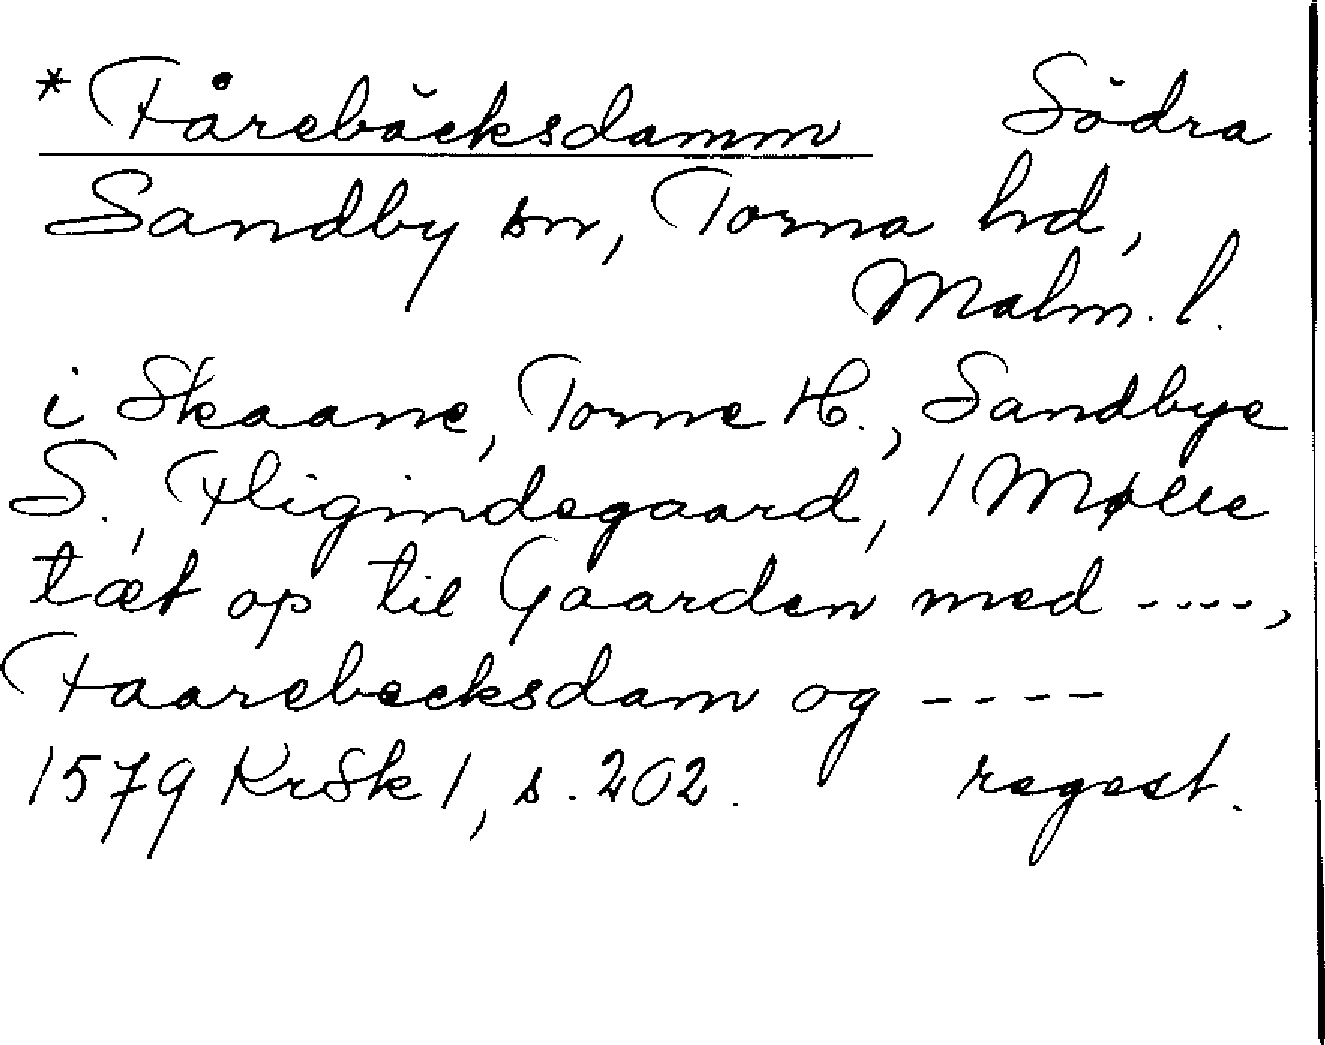 * Fårebäcksdamm Södra
Sandby sn, Torna hd,
Malm. l.
i Skaane, Torne H., Sandbye
S., Fligindegaard, 1 Mølle
tæt op til Gaarden med ----,
Faarebecksdam og ----
1579 KrSk 1, s. 202. regest.